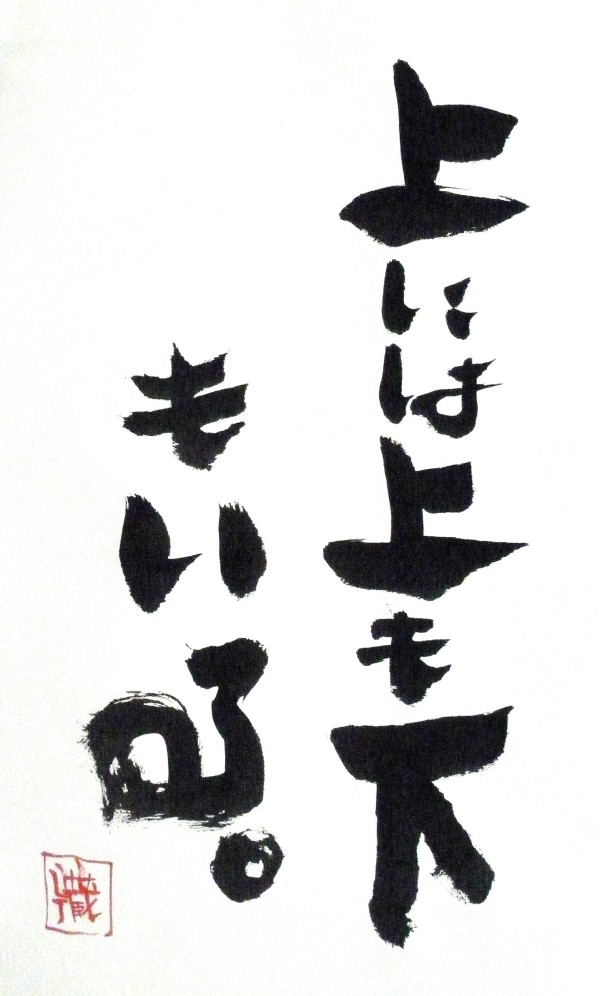 上には上も下
もいる。